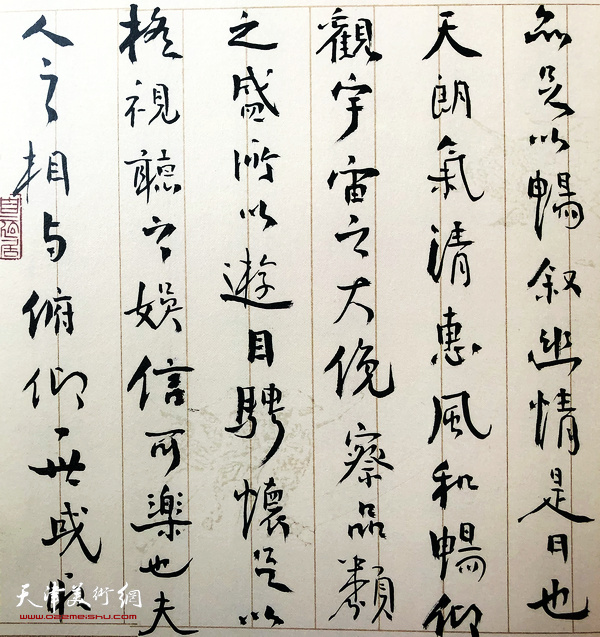 亦足以暢叙幽情是日也
天朗氣清惠風和暢仰
觀宇宙之大俛察品類
之盛所以遊目騁懷足以
極視聽之娛信可樂也夫
人之相与俯仰一世或取
天津美術網
www.022meishu.com